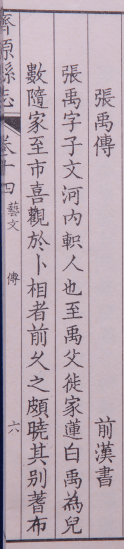 張禹傳 前漢書
張禹字子文河內軹人也至禹父徙家蓮白禹為兒
數隨家至市喜觀於卜相者前久之頗曉其別蓍布
濟源縣志 卷十四 藝文 傳 六